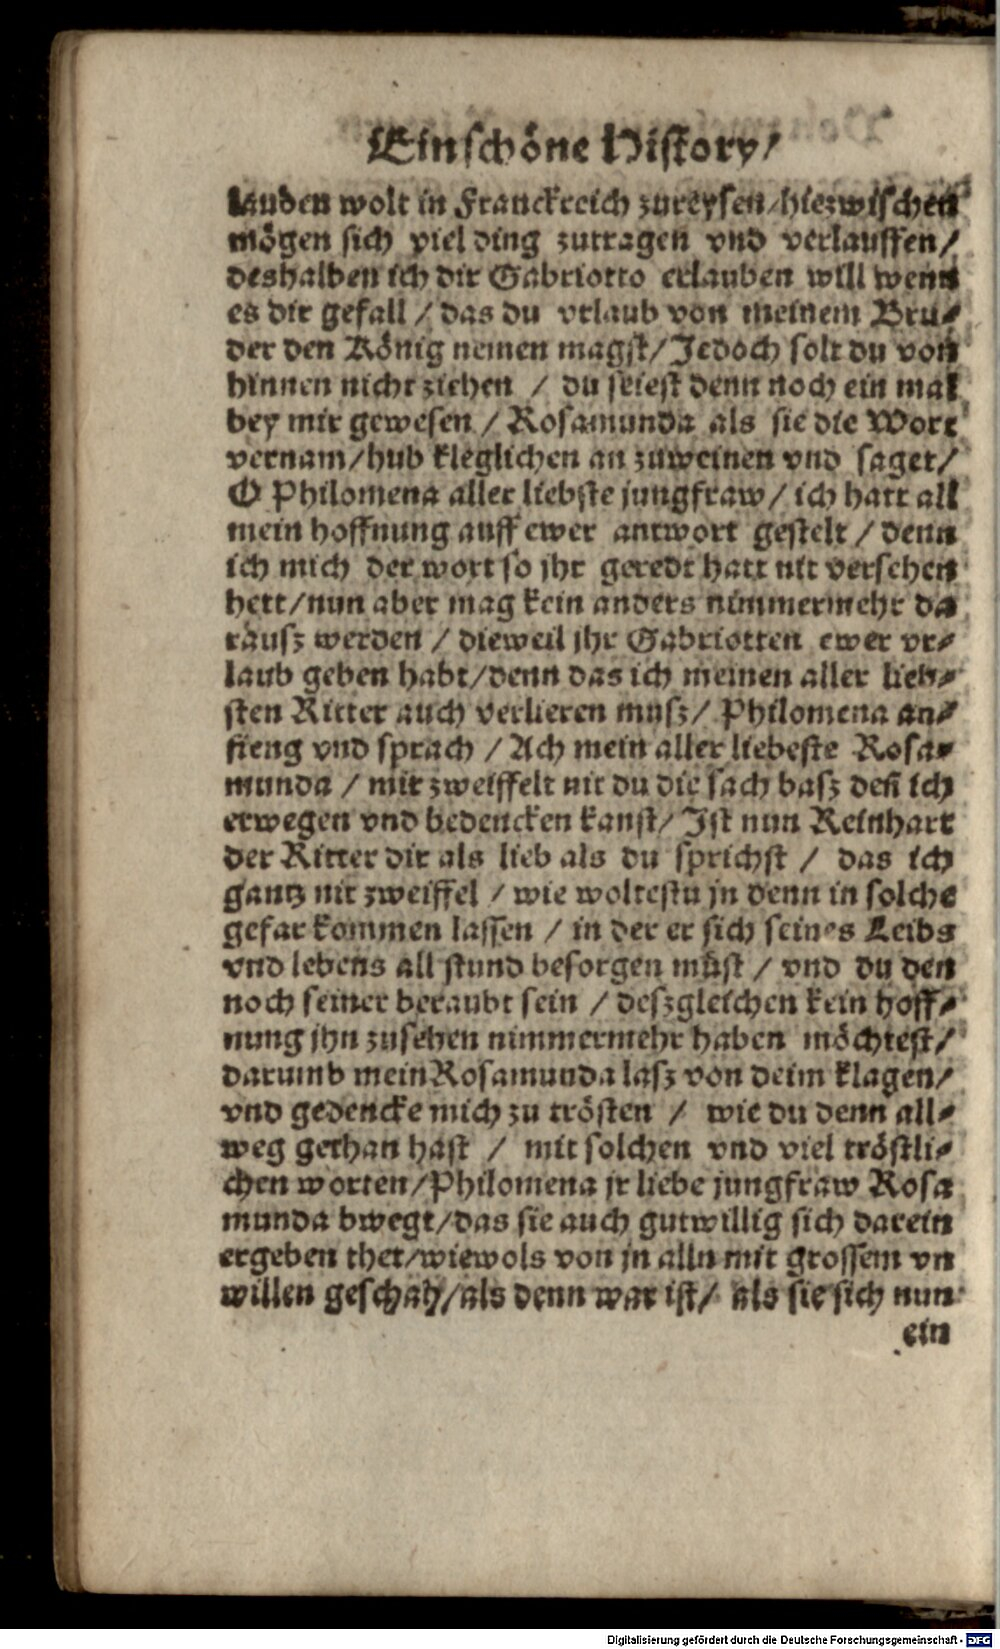 Ein schöne History/
landen wolt in Franckreich zureysen/hiezwischen
mögen sich viel ding zutragen vnd verlauffen/
deshalben ich dir Gabriotto erlauben will wenn
es dir gefall / das du vrlaub von meinem Bru-
der den König nemen magst/ Jedoch solt du von
hinnen nicht ziehen / du seiest denn noch ein mal
bey mir gewesen / Rosamunda als sie die Wort
vernam/hub kleglichen an zuweinen vnd saget/
O Philomena aller liebste jungfraw/ ich hatt all
mein hoffnung auff ewer antwort gestelt / denn
ich mich der wort so jhr geredt hatt nit versehen
hett/nun aber mag kein anders nimmermehr da
rausz werden / dieweil jhr Gabriotten ewer vr-
laub geben habt/denn das ich meinen aller lieb-
sten Ritter auch verlieren musz/ Philomena an-
fieng vnd sprach / Ach mein aller liebeste Rosa-
munda / mir zweiffelt nit du die sach basz deñ ich
erwegen vnd bedencken kanst/ Jst nun Reinhart
der Ritter dir als lieb als du sprichst / das ich
gantz nit zweiffel / wie woltestu jn denn in solche
gefar kommen lassen / in der er sich seines Leibs
vnd lebens all stund besorgen müst / vnd du den
noch seiner beraubt sein / deszgleichen kein hoff-
nung jhn zusehen nimmermehr haben möchtest/
darumb mein Rosamunda lasz von deim klagen/
vnd gedencke mich zu trösten / wie du denn all-
weg gethan hast / mit solchen vnd viel tröstli-
chen worten/Philomena jr liebe jungfraw Rosa
munda bwegt/das sie auch gutwillig sich darein
ergeben thet/wiewols von jn alln mit grossem vn
willen geschah/als denn war ist/ als sie sich nun
ein
Digitalisierung gefördert durch die Deutsche Forschungsgemeinschaft - DFG